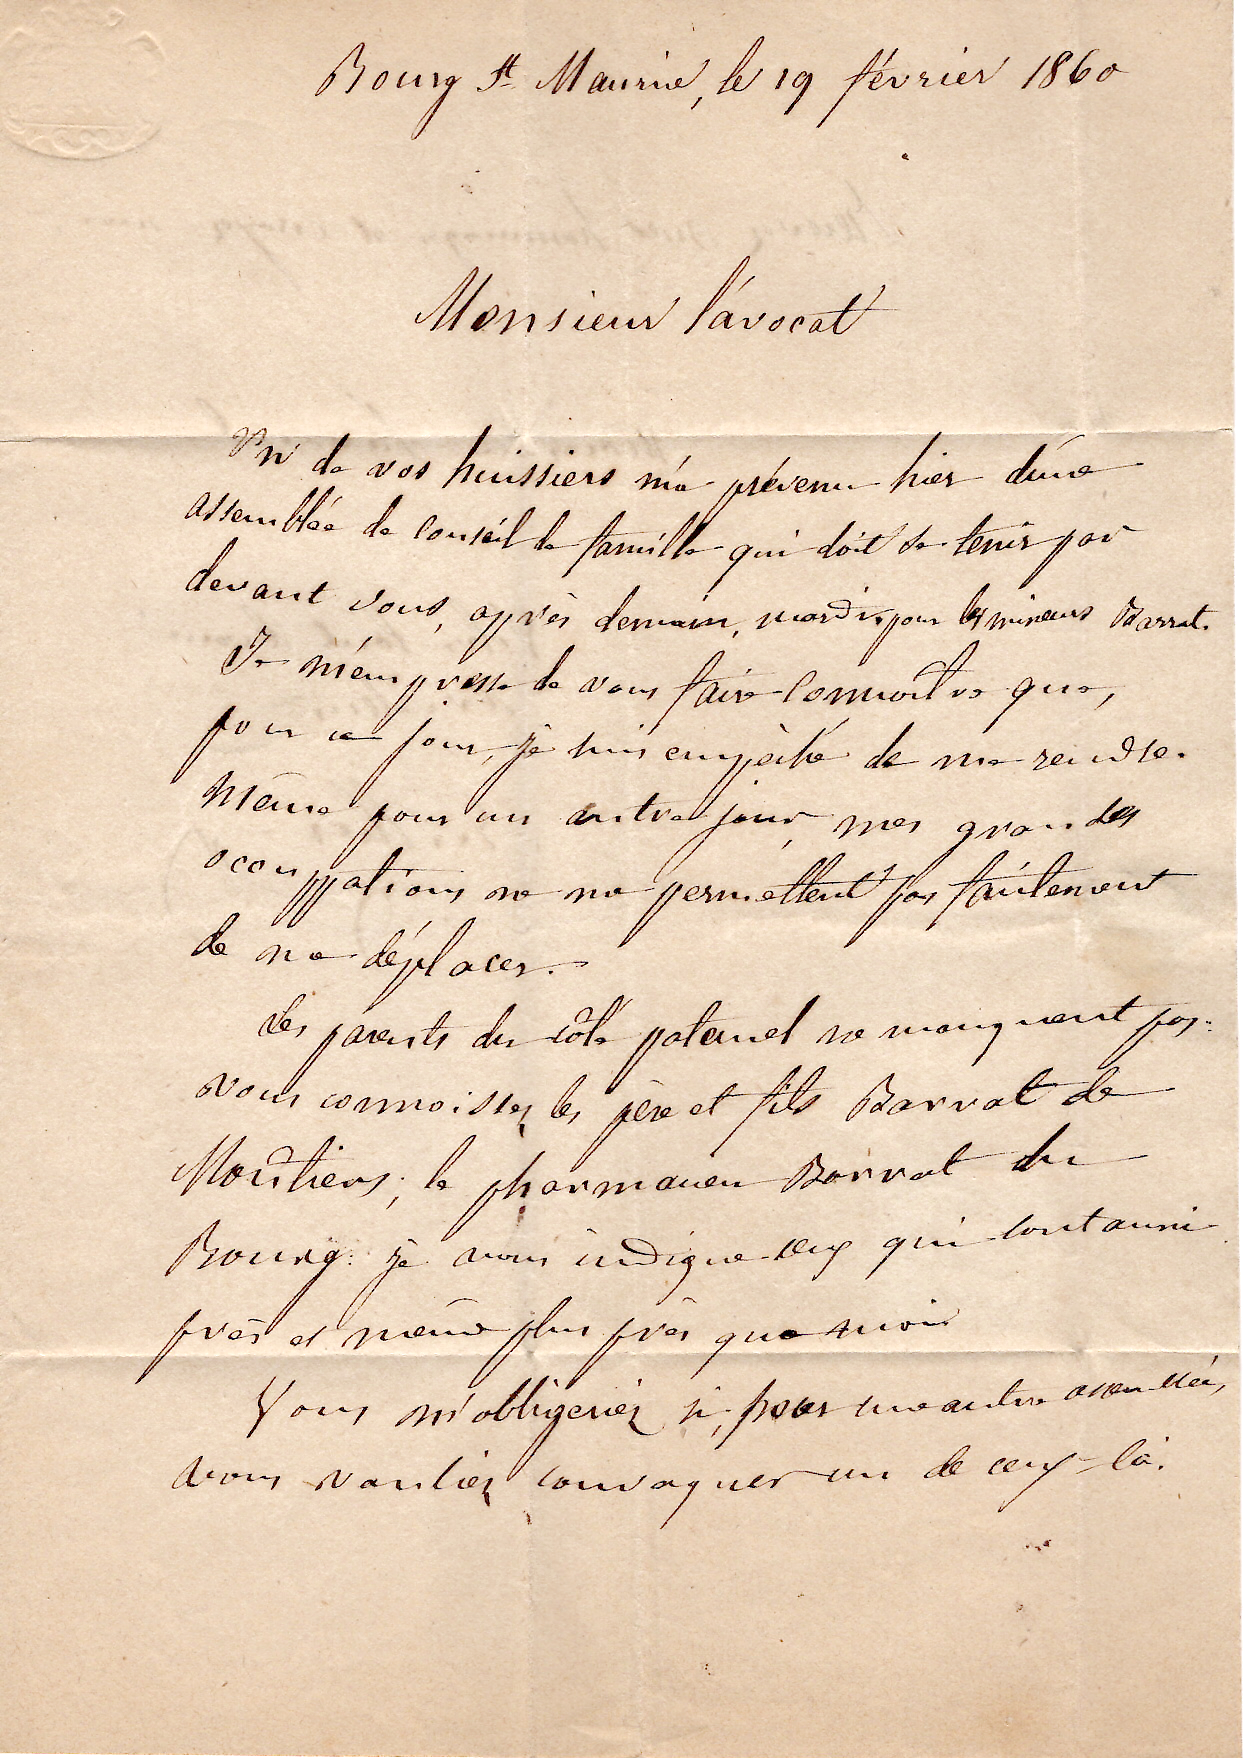 Bourg St Maurice, le 19 février 1860
Monsieur l'avocat
Un de vos huissiers m'a prévenu hier d'une
assemblée de conseil de famille qui doit se tenir par
devant vous, après demain, mardi, pour les mineurs Barrat.
Je m'empresse de vous faire connoître que,
pour ce jour, je suis empêché de me rendre.
même pour un autre jour, mes grandes
occuppations ne me permettent pas facilement
de me déplacer.
Les parents du côté paternel ne manquent pas:
vous connoissez les père et fils Barrat de
Moûtiers; le pharmacien Barrat du
Bourg: je vous indique ceux qui sont aussi
près et même plus près que moi
Vous m'obligeriez si, pour une autre assemblée,
vous vouliez convoquer un de ceux-là.